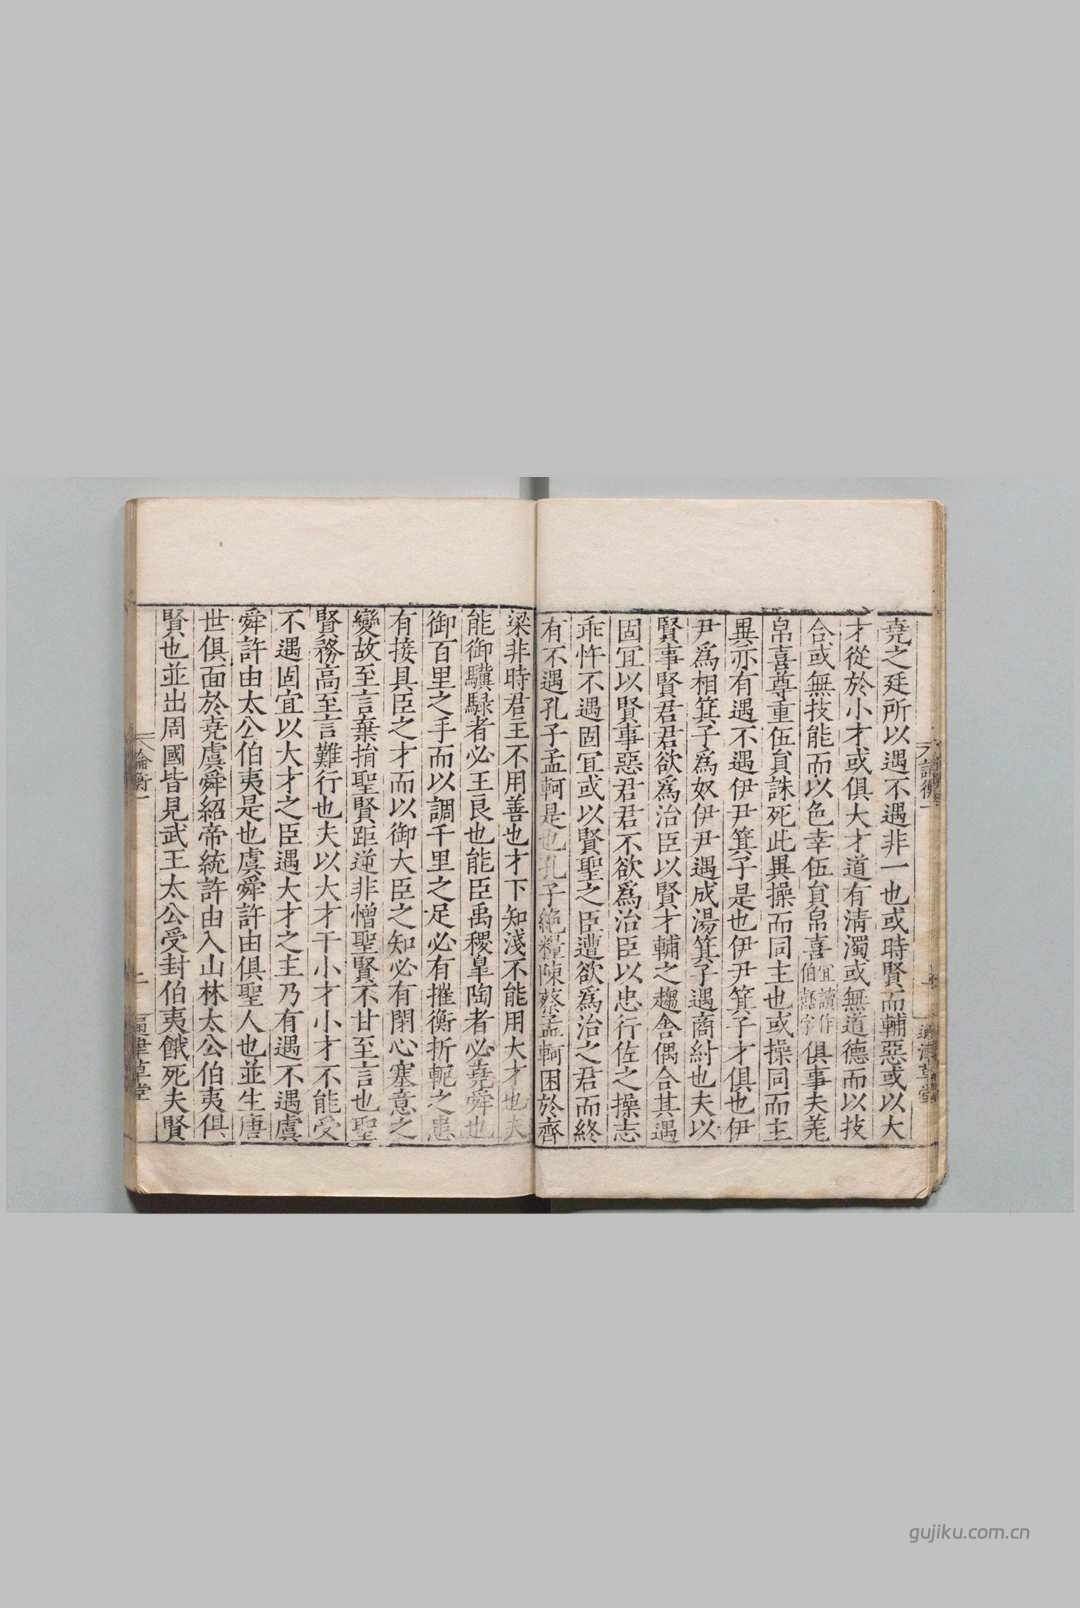 堯之廷所以遇不遇非一也或時賢而輔惡或以大
才從於小才或俱大才道有清濁或無道德而以技
合或無技能而以色幸伍員帛喜宜讀作伯嚭字俱事夫羌
帛喜尊重伍員誅死此異操而同主也或操同而主
異亦有遇不遇伊尹箕子是也伊尹箕子才俱也伊
尹爲相箕子爲奴伊尹遇成湯箕子遇商紂也夫以
賢事賢君君欲爲治臣以賢才輔之趨舍偶合其遇
固宜以賢事惡君君不欲爲治臣以忠行佐之操志
乖忤不遇固宜或以賢聖之臣遭欲爲治之君而終
有不遇孔子孟軻是也孔子絶糧陳蔡孟軻困於齊
論衡一
二
通津草堂
梁非時君王不用善也才下知淺不能用大才也夫
能御驥騄者必王良也能臣禹稷臯陶者必堯舜也
御百里之手而以調千里之足必有摧衡折軛之患
有接具臣之才而以御大臣之知必有閉心塞意之
變故至言棄捐聖賢距逆非憎聖賢不甘至言也聖
賢務高至言難行也夫以大才干小才小才不能受
不遇固宜以大才之臣遇大才之主乃有遇不遇虞
舜許由太公伯夷是也虞舜許由俱聖人也並生唐
世俱面於堯虞舜紹帝統許由入山林太公伯夷俱
賢也並出周國皆見武王太公受封伯夷餓死夫賢
論衡一
通津草堂
gujiku.com.cn